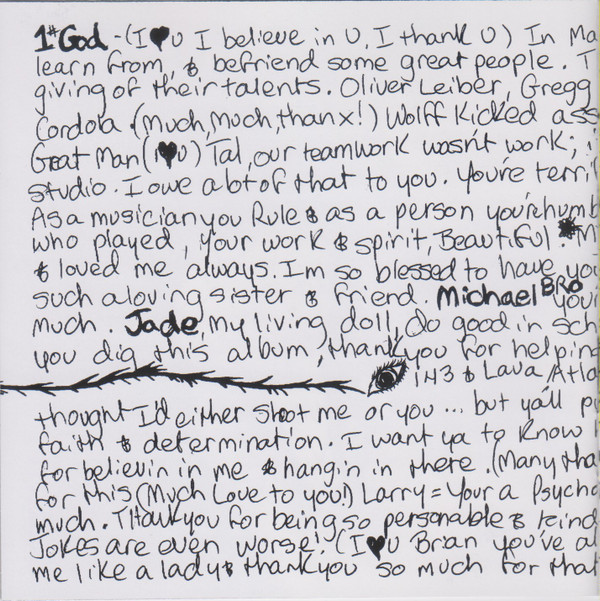 1# God - (I ♥ U I believe in U, I thank U) In Ma
learn from, & befriend some great people. T
giving of their talents. Oliver Leiber, Gregg
Cordola. (Much, Much, thanx!) Wolff Kicked ass
Great Man (I ♥ U) Tal, our teamwork wasn't work; i
studio. I owe a lot of that to you. You're terri
As a musician you Rule & as a person you're humb
who played, your work & spirit, Beautiful * M
& loved me always. I'm so blessed to have you
such a loving sister & friend. Michael BRO your
much. Jade, my living doll, do good in sch
you dig this album, thank you for helping
143 & Lava/Atla
thought I'd either shoot me or you... but ya'll pu
faith & determination. I want ya to know
for believin in me & hangin in there. (Many tha
for this (Much Love to you!) Larry = Your a Psycho
much. Thank you for being so personable & kind
Jokes are even worse! (I ♥ U Brian you've al
me like a lady & thank you so much for that